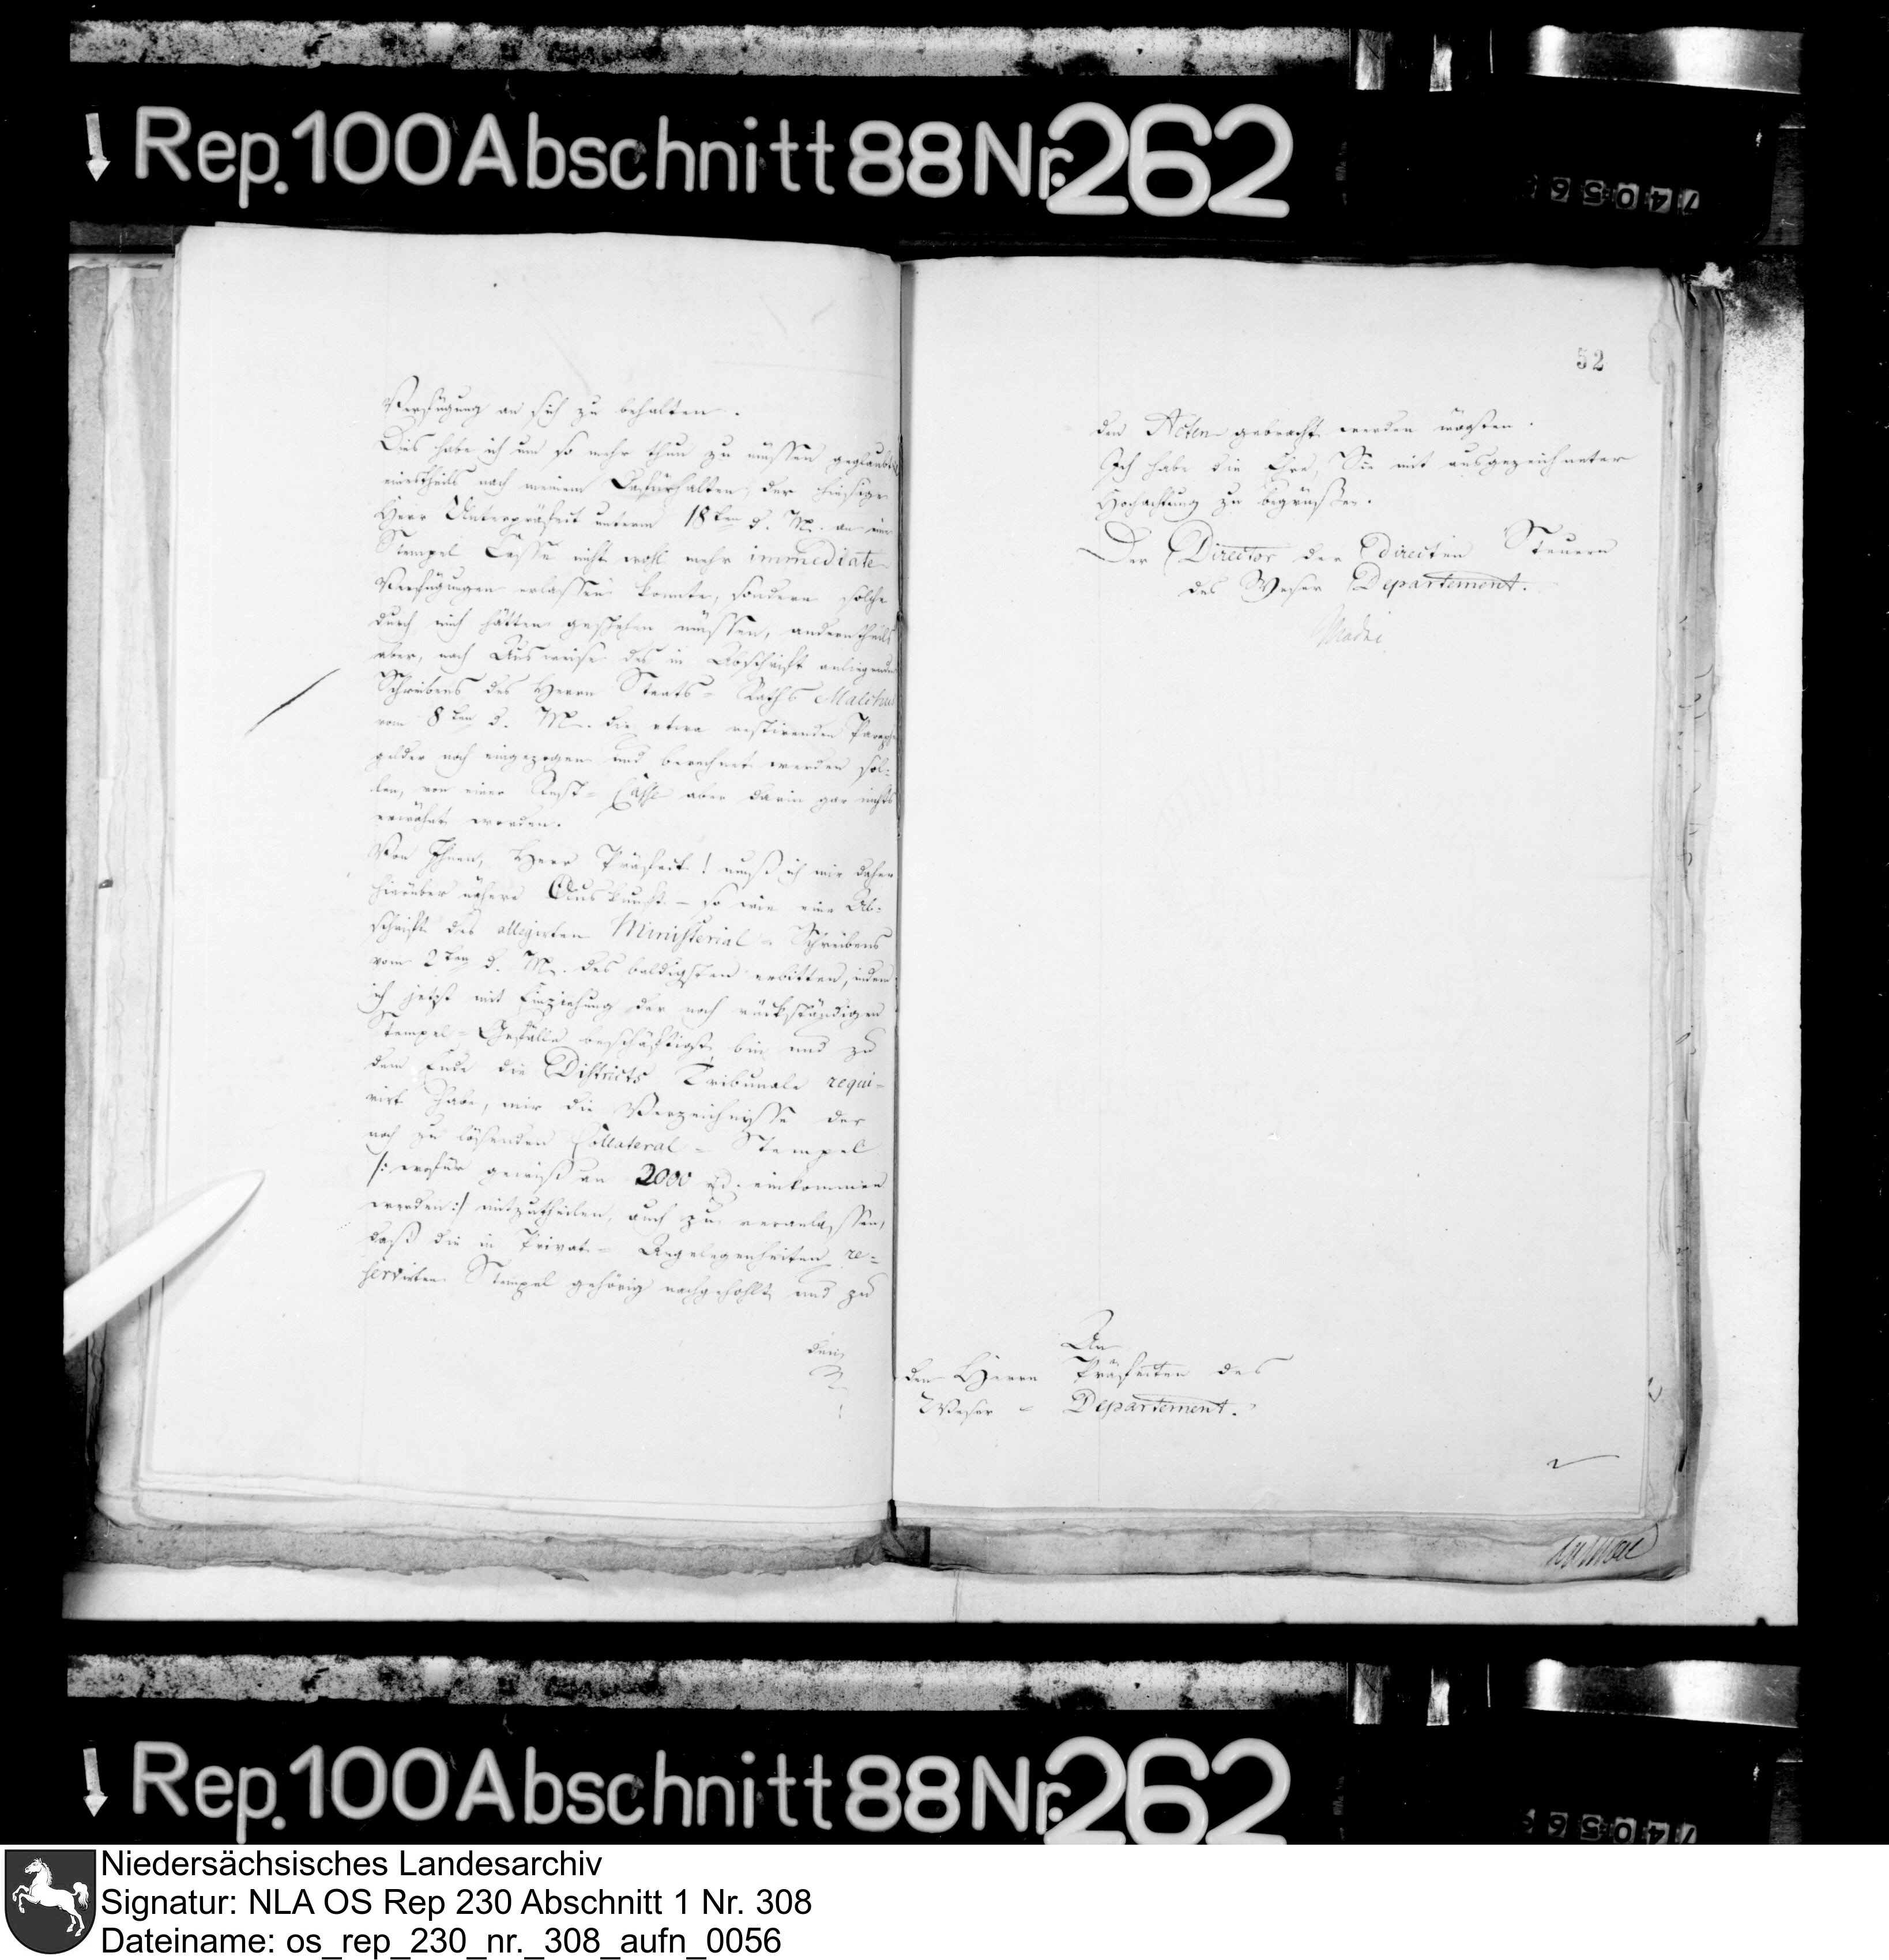 Rep. 100 Abschnitt 88 Nr. 262
74056
Verfügung an sich zu behalten.
Dies habe ich um so mehr thun zu müssen geglaubt,
einestheils nach meinem Dafürhalten der hiesige
Herr Unterpräfect unterm 18ten d. M. an eine
Stempel Casse nicht wohl mehr immediate
Verfügungen erlassen konnte, sondern solche
durch mich hätten geschehen müssen, anderntheils
aber, nach Ausweise des in Abschrift anliegenden
Schreibens des Herrn Staats-Raths Malchus
vom 8ten d. M. die etwa restirenden
gelder noch eingezogen und berechnet werden sol-
len, von einer Rest-Casse aber darin gar nichts
erwähnt worden.
Von Ihnen, Herr Präfect! muß ich mir daher
hierüber nähere Auskunft - so wie eine Ab-
schrift des allegirten Ministerial-Schreibens
vom 2ten d. M. des baldigsten erbitten, indem
ich jetzt mit Einziehung der noch rückständigen
Stempel-Gefälle beschäftigt bin und zu
dem Ende die Districts Tribunale requi-
rirt habe, mir die Verzeichnisse der
noch zu lösenden Collateral-Stempel
/: wofür gewiß an 2000 rd. einkommen
werden :/ mitzutheilen, auch zu veranlassen,
daß die in Privat-Angelegenheiten re-
servirten Stempel gehörig nachgehohlt und zu
den
52
den Acten gebracht werden mögten.
Ich habe die Ehre, Sie mit ausgezeichneter
Hochachtung zu begrüßen.
Der Director der directen Steuern
des Weser Departement.
An
den Herrn Präfecten des
Weser-Departement.
Rep. 100 Abschnitt 88 Nr. 262
74056
Niedersächsisches Landesarchiv
Signatur: NLA OS Rep 230 Abschnitt 1 Nr. 308
Dateiname: os_rep_230_nr._308_aufn_0056